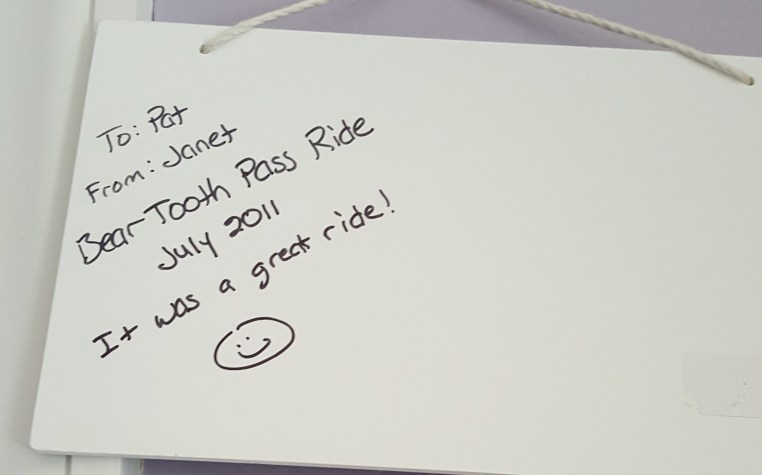 To: Pat
From: Janet
Bear Tooth Pass Ride
July 2011
It was a great ride!